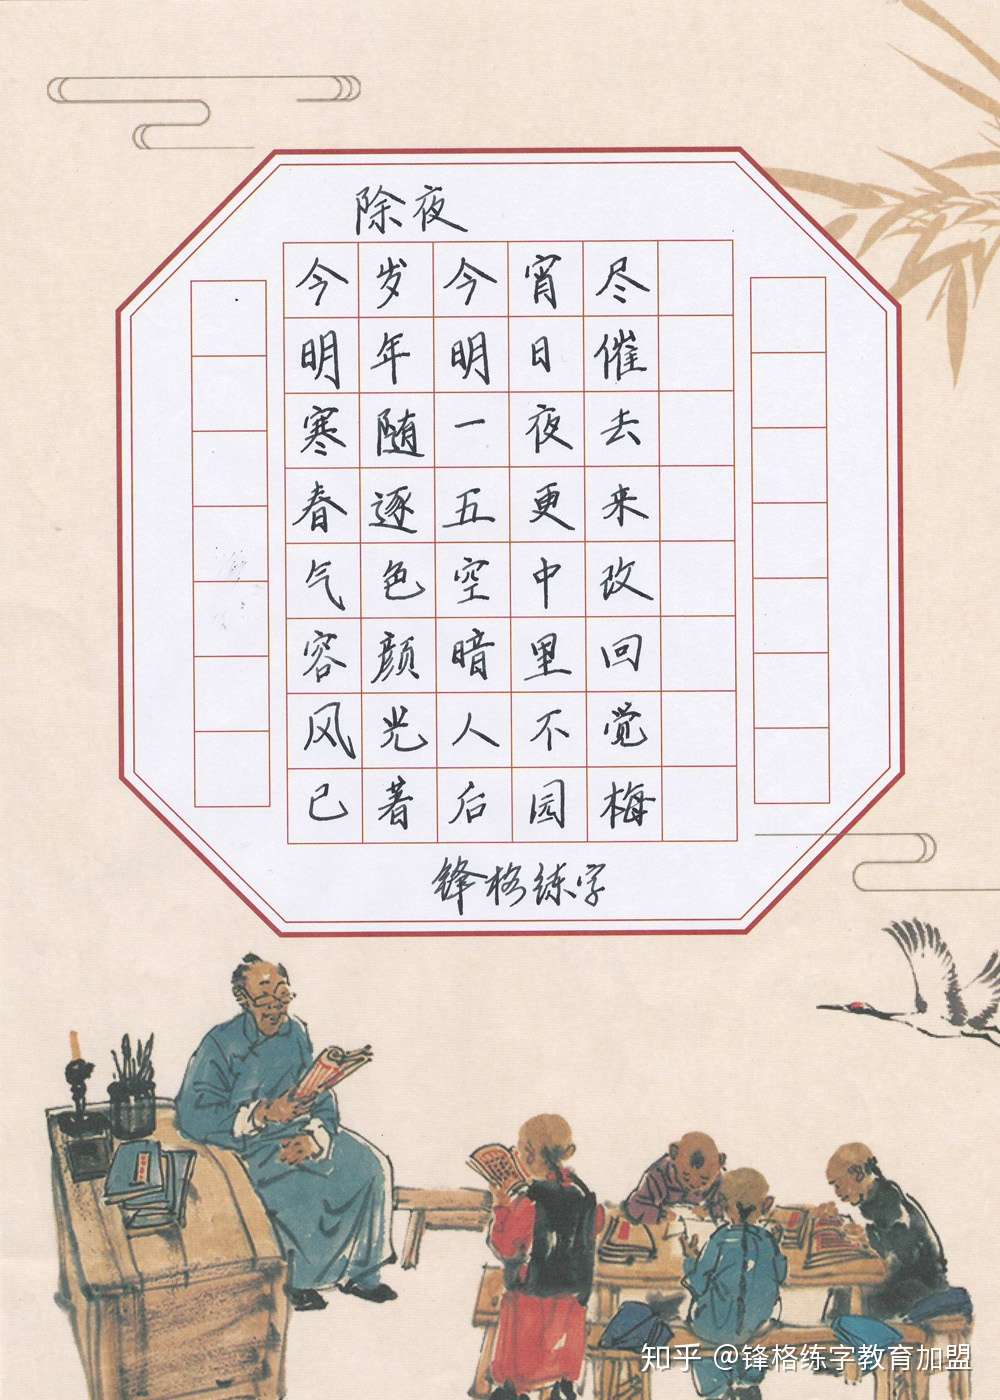 除夜
今岁今宵尽
明年明日催
寒随一夜去
春逐五更来
气色空中改
容颜暗里回
风光人不觉
已著后园梅
锋格练字
知乎 @锋格练字教育加盟